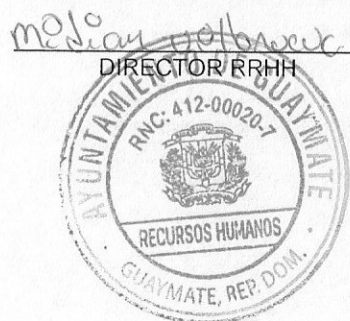 DIRECTOR RRHH
AYUNTAMIENTO DE GUAYMATE
RNC: 412-00020-7
RECURSOS HUMANOS
GUAYMATE, REP. DOM.